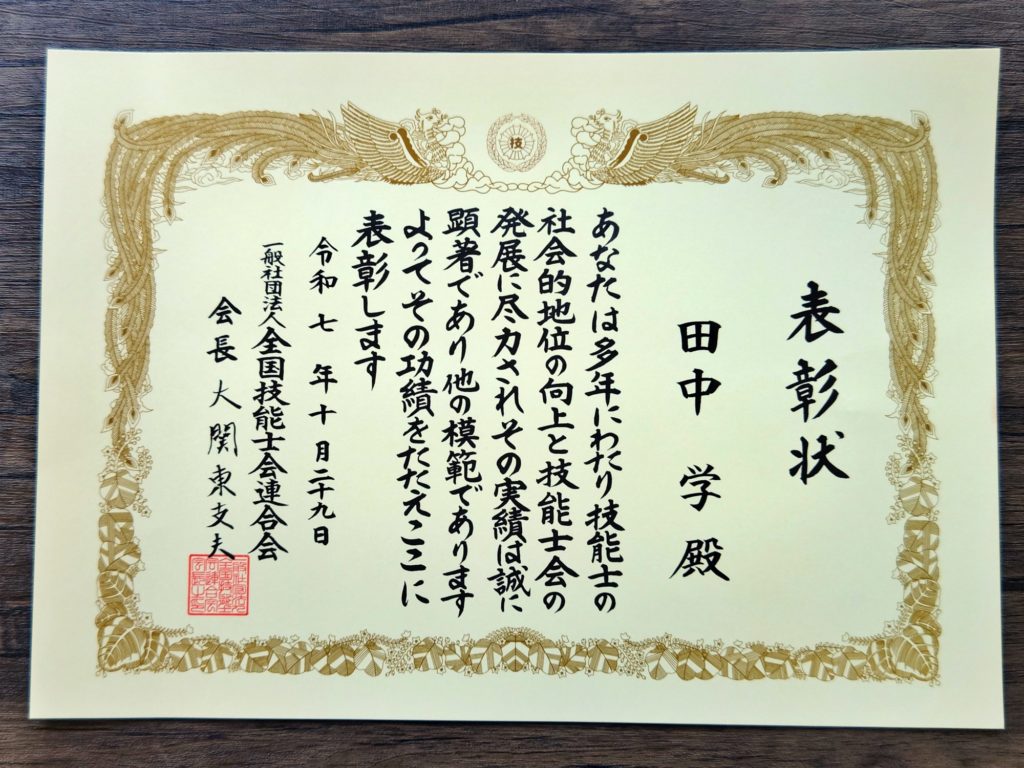 技
表彰状
田中 学 殿
あなたは多年にわたり技能士の
社会的地位の向上と技能士会の
発展に尽力されその実績は誠に
顕著であり他の模範であります
よってその功績をたたえここに
表彰します
令和七年十月二十九日
一般社団法人全国技能士会連合会
会長 大関東支夫